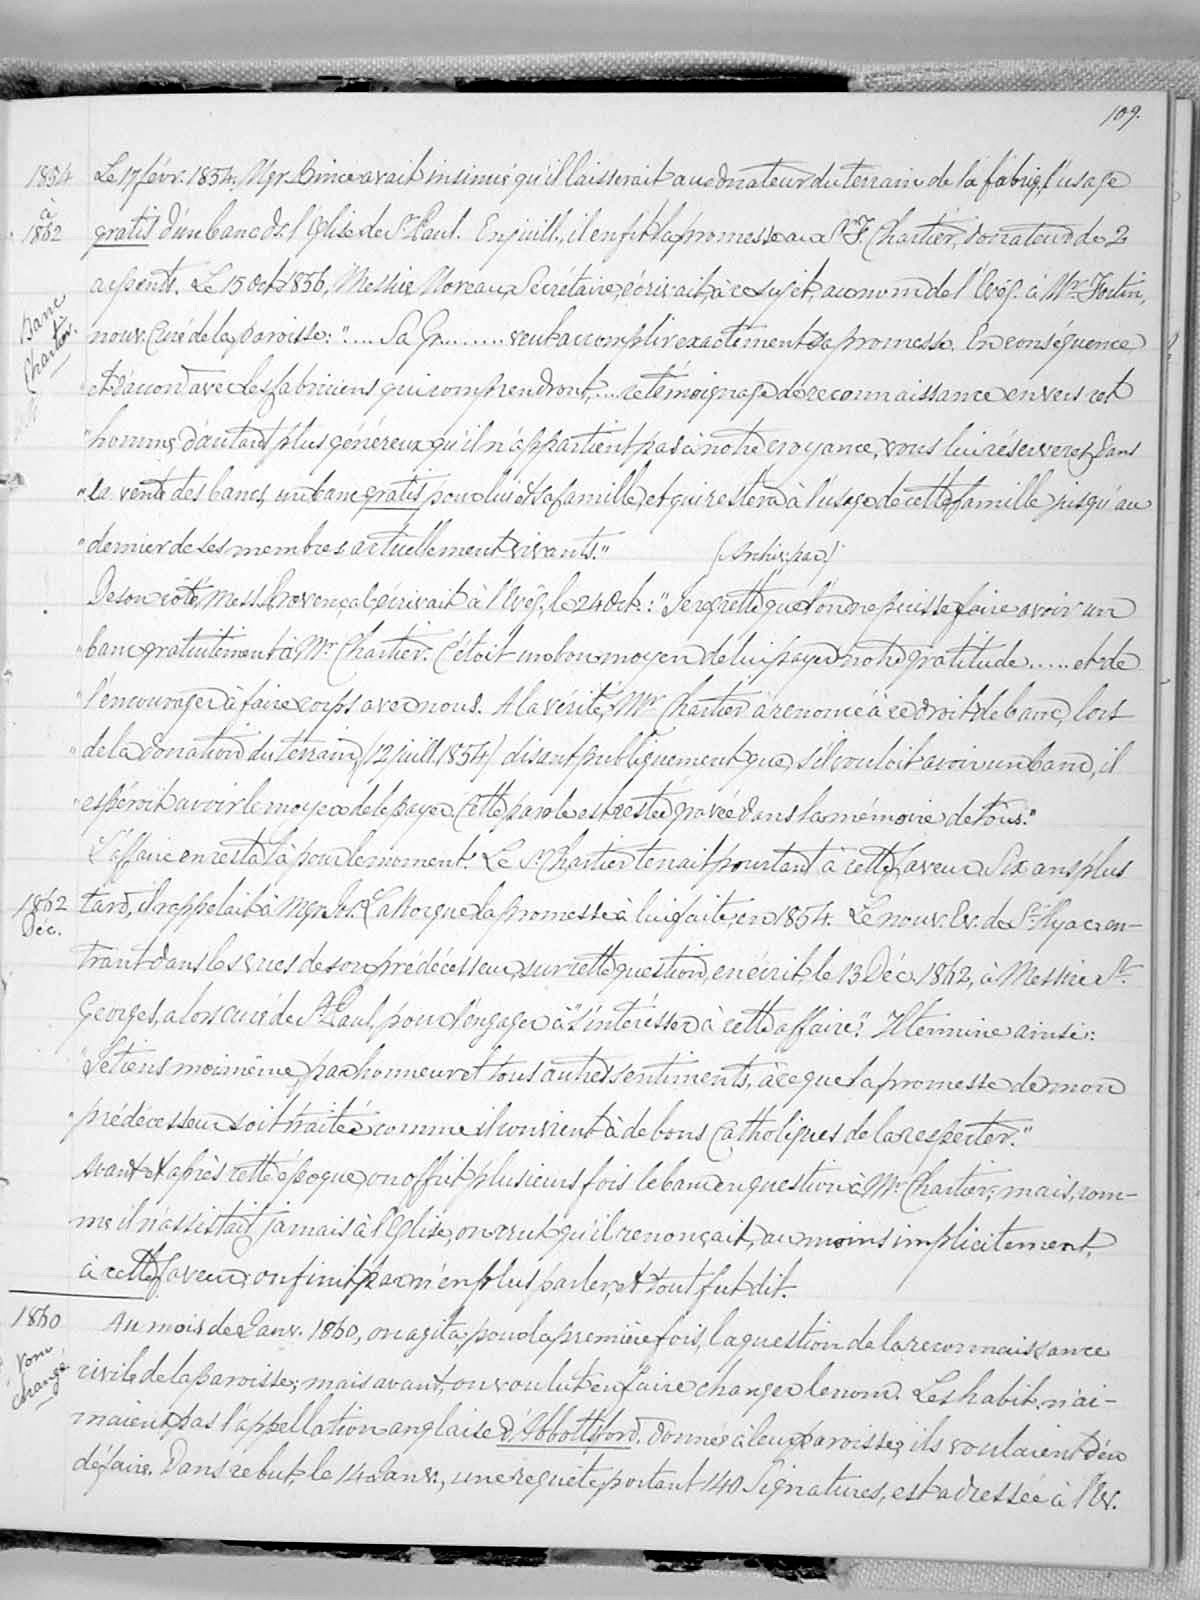 109.
1854 Le 17 févr. 1854. Mgr. Prince avait insinué qu'il laisserait au donateur du terrain de la fabriq. l'usage
à
1862 gratis d'un banc de l'Eglise de St. Paul. En juill., il en fit la promesse au Sr. F. Chartier, donateur de 2
arpents. Le 15 Oct. 1856, Messire Moreau, Secrétaire, écrivait, à ce sujet, au nom de l'Evêq. à Mr. Fortin,
Banc
Chartier.
nouv. Curé de la paroisse: "..... Sa Gr......... veut accomplir exactement sa promesse. En conséquence,
"et d'accord avec les fabriciens qui comprendront,.... ce témoignage de reconnaissance envers cet
"homme, d'autant plus généreux qu'il n'appartient pas à notre croyance, vous lui réserverez, dans
"la vente des bancs, un banc gratis pour lui et sa famille, et qui restera à l'usage de cette famille jusqu'au
"dernier de ses membres actuellement vivants." (Archiv. par.)
De son côté, Mess. Provençal écrivait à l'Evêq., le 24 Oct.: "Je regrette que l'on ne puisse faire avoir un
"banc gratuitement à Mr. Chartier. C'étoit un bon moyen de lui payer notre gratitude..... et de
"l'encourager à faire corps avec nous. A la vérité, Mr. Chartier a renoncé à ce droit de banc, lors
"de la donation du terrain, (12 juill. 1854) disant publiquement que, s'il vouloit avoir un banc, il
"espéroit avoir le moyen de le payer. Cette parole est restée gravée dans la mémoire de tous."
L'affaire en resta là pour le moment. Le Sr. Chartier tenait pourtant à cette faveur. Six ans plus
1862
Déc.
tard, il rappelait à Mgr. Jos. LaRocque la promesse à lui faite, en 1854. Le nouv. Ev. de St. Hyac. en-
trant dans les vues de son prédécesseur, sur cette question, en écrit, le 13 Déc. 1862, à Messire St.
Georges, alors curé de St. Paul, pour l'engager à "s'intéresser à cette affaire". Il termine ainsi:
"Je tiens moi même, par honneur et tous autres sentiments, à ce que la promesse de mon
"prédécesseur soit traitée comme il convient à de bons Catholiques de la respecter."
Avant et après cette époque, on offrit plusieurs fois le banc en question à Mr. Chartier; mais, com-
me il n'assistait jamais à l'Eglise, on crut qu'il renonçait, au moins implicitement,
à cette faveur; on finit par n'en plus parler, et tout fut dit.
1860 Au mois de Janv. 1860, on agita, pour la première fois, la question de la reconnaissance
Nom
changé.
civile de la paroisse; mais avant, on voulut en faire changer le nom. Les habit. n'ai-
maient pas l'appellation anglaise d'Abbottsford. donnée à leur paroisse; ils voulaient s'en
défaire. Dans ce but, le 14 Janv., une requête, portant 140 Signatures, est adressée à l'Ev.